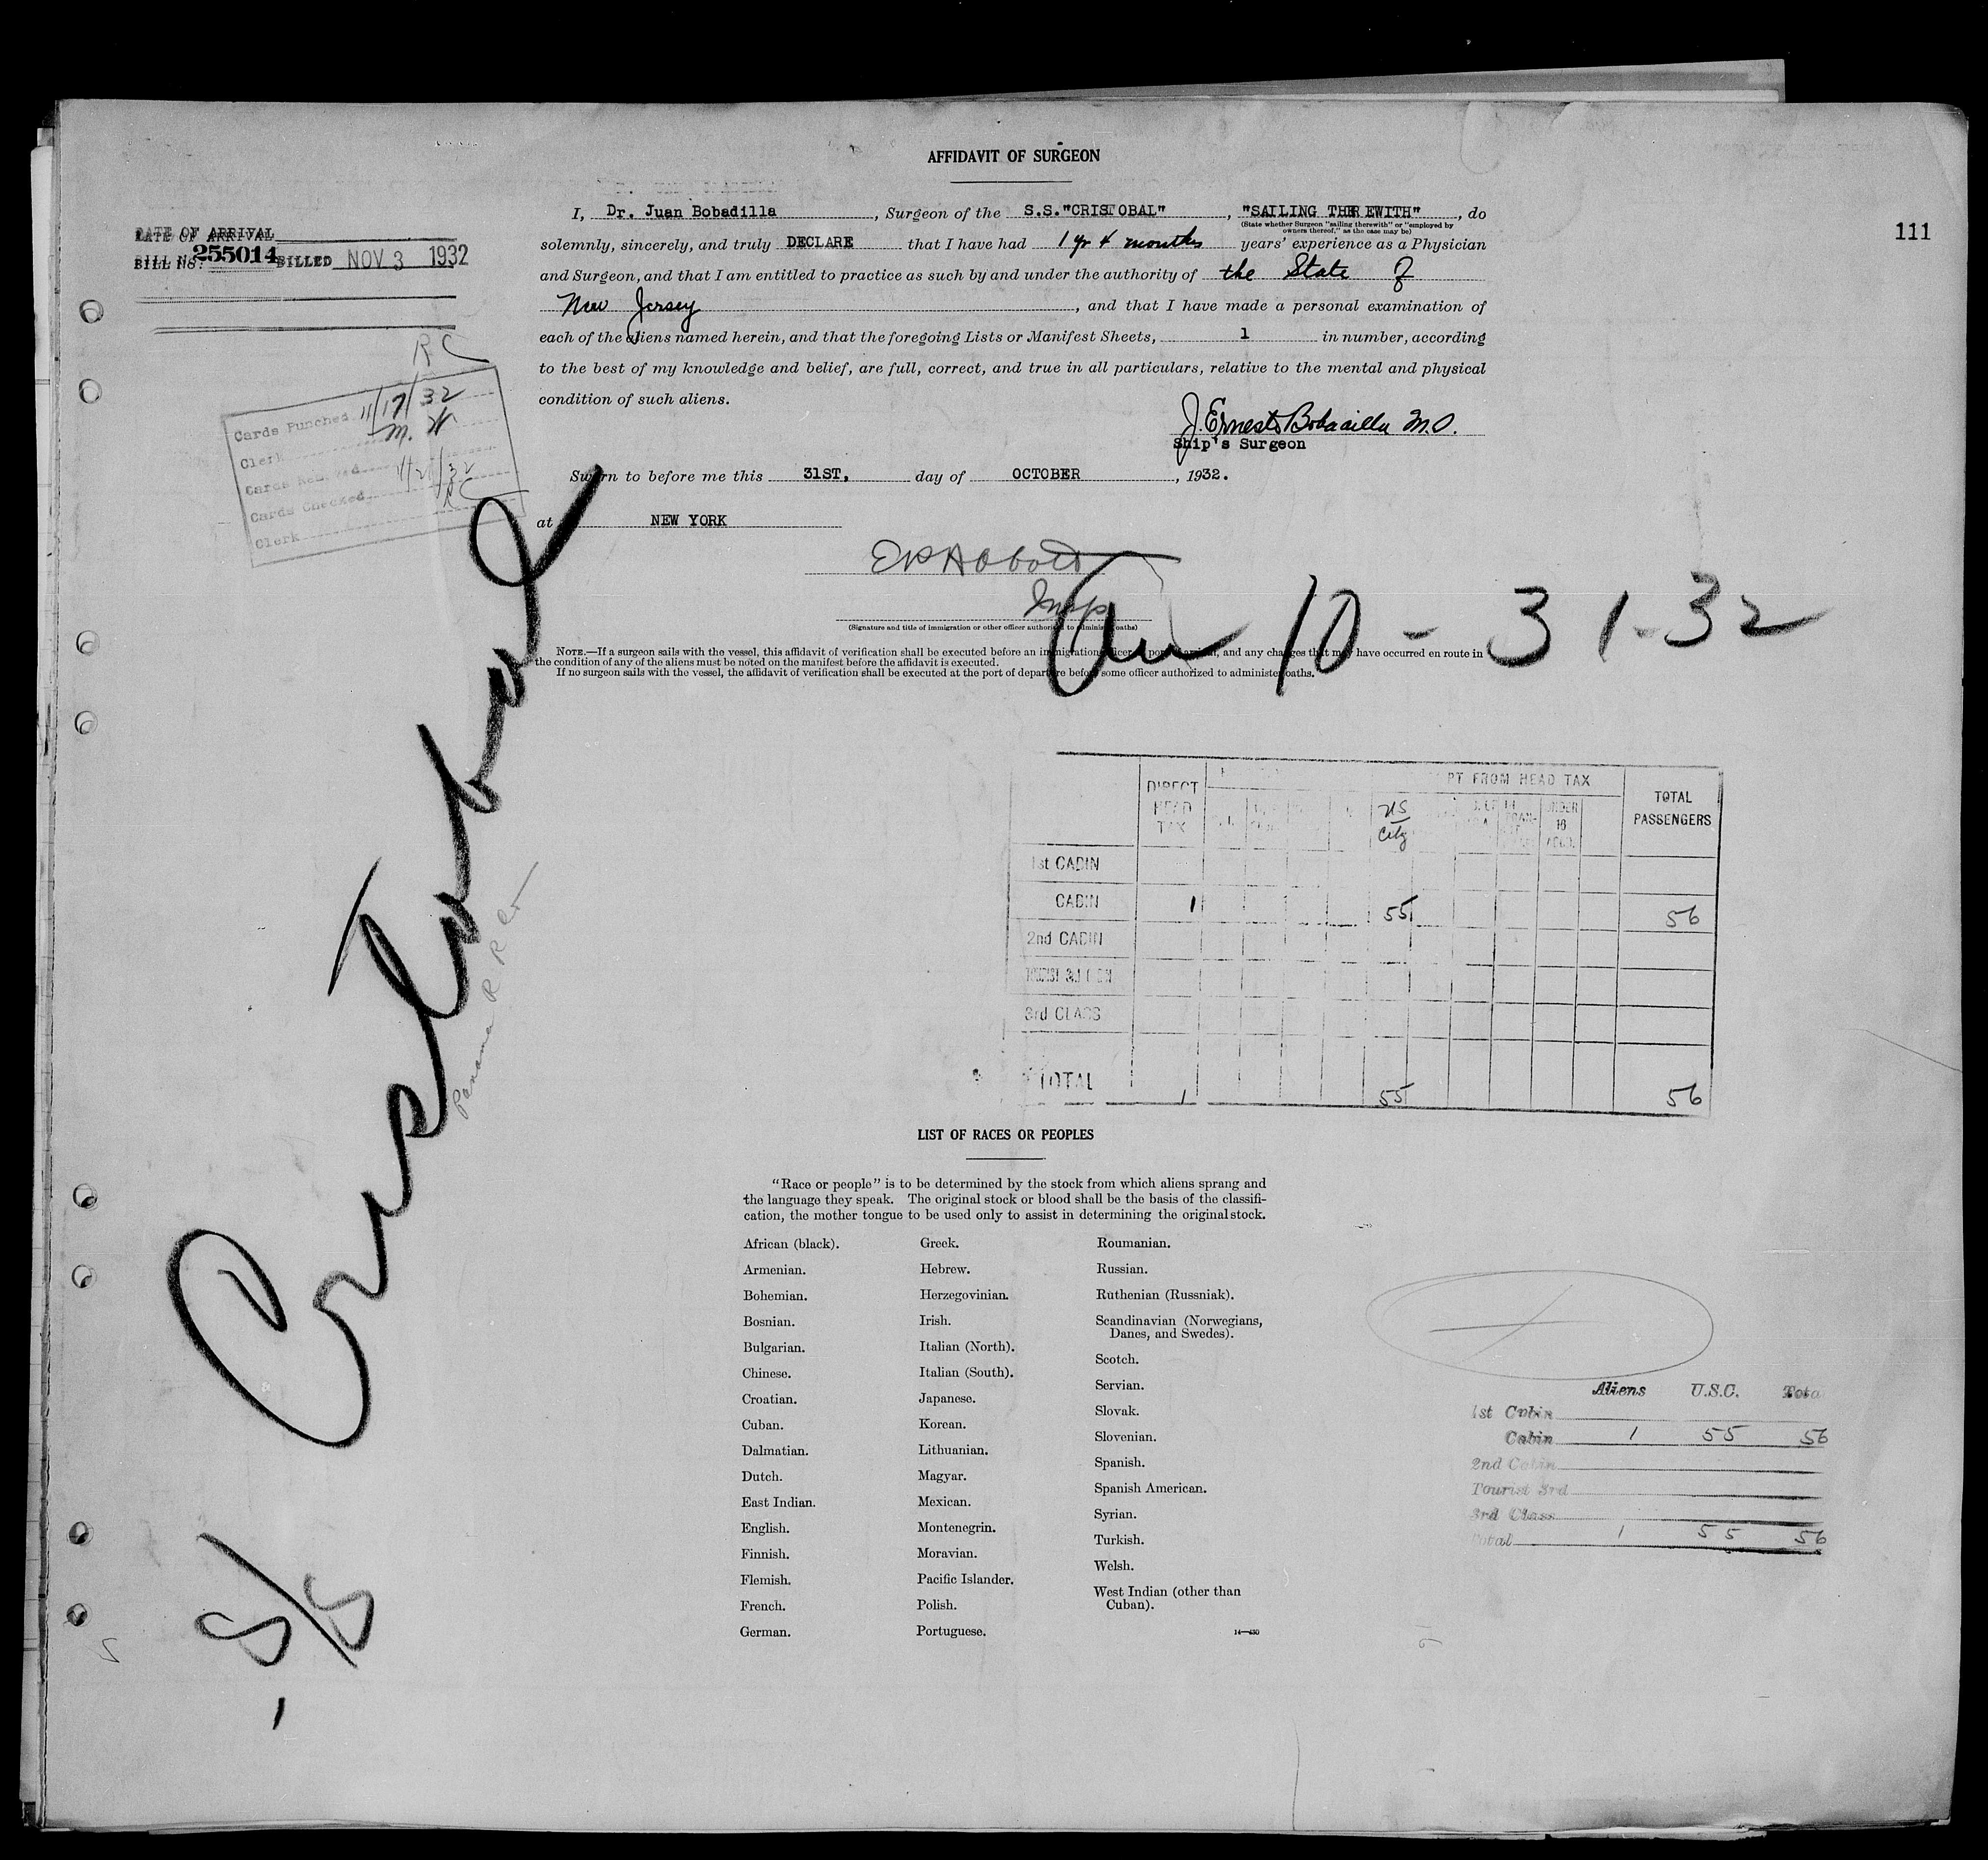 AFFIDAVIT OF SURGEON
111
I, Dr. Juan Bobadilla, Surgeon of the S.S."CRISTOBAL", "SAILING THEREWITH", do
(State whether Surgeon "sailing therewith" or "employed by
owners thereof," as the case may be)
solemnly, sincerely, and truly DECLARE that I have had 1 yr 4 months years' experience as a Physician
and Surgeon, and that I am entitled to practice as such by and under the authority of the State of
New Jersey, and that I have made a personal examination of
each of the aliens named herein, and that the foregoing Lists or Manifest Sheets, 1 in number, according
to the best of my knowledge and belief, are full, correct, and true in all particulars, relative to the mental and physical
condition of such aliens.
J. Ernesto Bobadilla M.D.
Ship's Surgeon
Sworn to before me this 31ST, day of OCTOBER, 1932.
at NEW YORK
Insp
(Signature and title of immigration or other officer authorized to administer oaths)
NOTE.—If a surgeon sails with the vessel, this affidavit of verification shall be executed before an immigration officer at port of arrival, and any changes that may have occurred en route in
the condition of any of the aliens must be noted on the manifest before the affidavit is executed.
If no surgeon sails with the vessel, the affidavit of verification shall be executed at the port of departure before some officer authorized to administer oaths.
DATE OF ARRIVAL
BILL No. 255014 BILLED NOV 3 1932
RC
Cards Punched 11/17/32
Clerk M. H.
Cards Checked
Clerk
10-31-32
S/S Cristobal
Panama R R Co
DIRECT HEAD TAX
PT FROM HEAD TAX
TOTAL PASSENGERS
US City
UNDER 16
1st CABIN
CABIN 1 55 56
2nd CABIN
3rd CLASS
TOTAL 1 55 56
LIST OF RACES OR PEOPLES
"Race or people" is to be determined by the stock from which aliens sprang and
the language they speak. The original stock or blood shall be the basis of the classifi-
cation, the mother tongue to be used only to assist in determining the original stock.
African (black).
Armenian.
Bohemian.
Bosnian.
Bulgarian.
Chinese.
Croatian.
Cuban.
Dalmatian.
Dutch.
East Indian.
English.
Finnish.
Flemish.
French.
German.
Greek.
Hebrew.
Herzegovinian.
Irish.
Italian (North).
Italian (South).
Japanese.
Korean.
Lithuanian.
Magyar.
Mexican.
Montenegrin.
Moravian.
Pacific Islander.
Polish.
Portuguese.
Roumanian.
Russian.
Ruthenian (Russniak).
Scandinavian (Norwegians,
Danes, and Swedes).
Scotch.
Servian.
Slovak.
Slovenian.
Spanish.
Spanish American.
Syrian.
Turkish.
Welsh.
West Indian (other than
Cuban).
14—430
Aliens U.S.C. Total
1st Cabin
Cabin 1 55 56
2nd Cabin
Tourist 3rd
3rd Class
Total 1 55 56